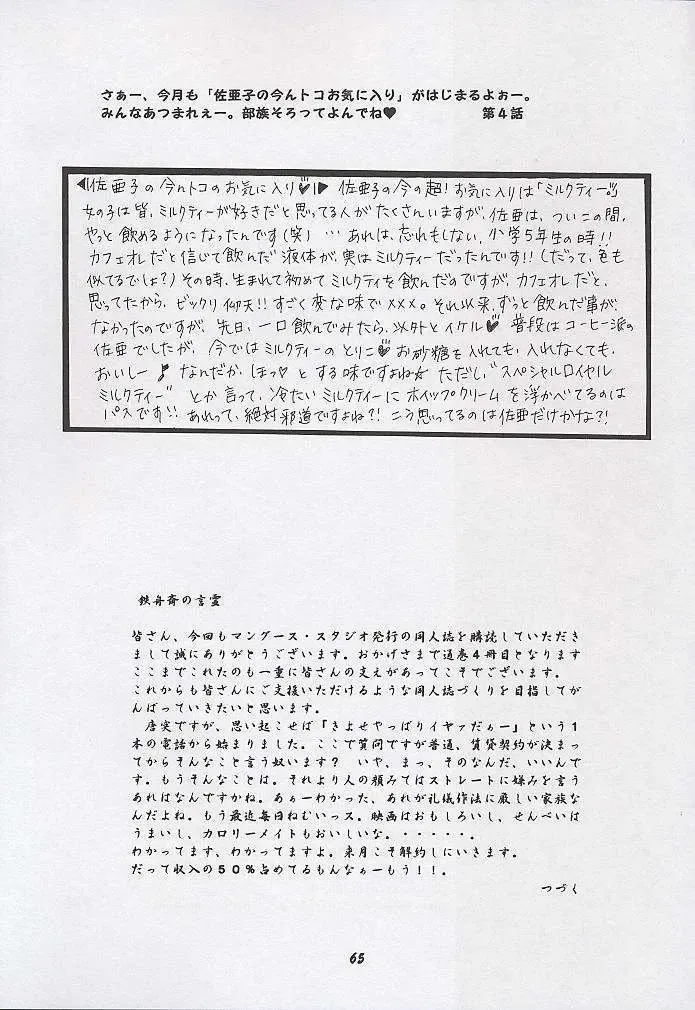 さぁー、今月も「佐亜子の今んトコお気に入り」がはじまるよぉー。
みんなあつまれぇー。部族そろってよんでね♥　第４話
佐亜子の今んトコのお気に入り♥ 佐亜子の今の超!お気に入りは「ミルクティー」。
女の子は皆、ミルクティーが好きだと思ってる人がたくさんいますが、佐亜は、ついこの間、
やっと飲めるようになったんです(笑) …あれは、忘れもしない、小学5年生の時!!
カフェオレだと信じて飲んだ液体が、実はミルクティーだったんです!!(だって、色も
似てるでしょ?)その時、生まれて初めてミルクティを飲んだのですが、カフェオレだと、
思ってたから、ビックリ仰天!!すごく変な味で×××。それ以来、ずっと飲んだ事が
なかったのですが、先日、一口飲んでみたら、以外とイケル♥ 普段はコーヒー派の
佐亜でしたが、今ではミルクティーのとりこ♥お砂糖を入れても、入れなくても、
おいしー♪なんだか、ほっ♡とする味ですよね☆ ただし、"スペシャルロイヤル
ミルクティー"とか言って、冷たいミルクティーにホイップクリームを浮かべてるのは
パスです!!あれって、絶対邪道ですよね?!こう思ってるのは佐亜だけかな?!
鉄舟斎の言霊
皆さん、今回もマングース・スタジオ発行の同人誌を購読していただき
まして誠にありがとうございます。おかげさまで通巻４冊目となります
ここまでこれたのも一重に皆さんの支えがあってこそでございます。
これからも皆さんにご支援いただけるような同人誌づくりを目指してが
んばっていきたいと思います。
唐突ですが、思い起こせば「きよせやっぱりイヤァだぁー」という１
本の電話から始まりました。ここで質問ですが普通、賃貸契約が決まっ
てからそんなこと言う奴います？　いや、まっ、そのなんだ、いいんで
す。もうそんなことは。それより人の顔みてはストレートに嫌みを言う
あれはなんですかね。あぁーわかった、あれが礼儀作法に厳しい家族な
んだよね。もう最近毎日ねむいっス。映画はおもしろいし、せんべいは
うまいし、カロリーメイトもおいしいな。・・・・・。
わかってます、わかってますよ。来月こそ解約しにいきます。
だって収入の５０％占めてるもんなぁーもう！！。
つづく
65